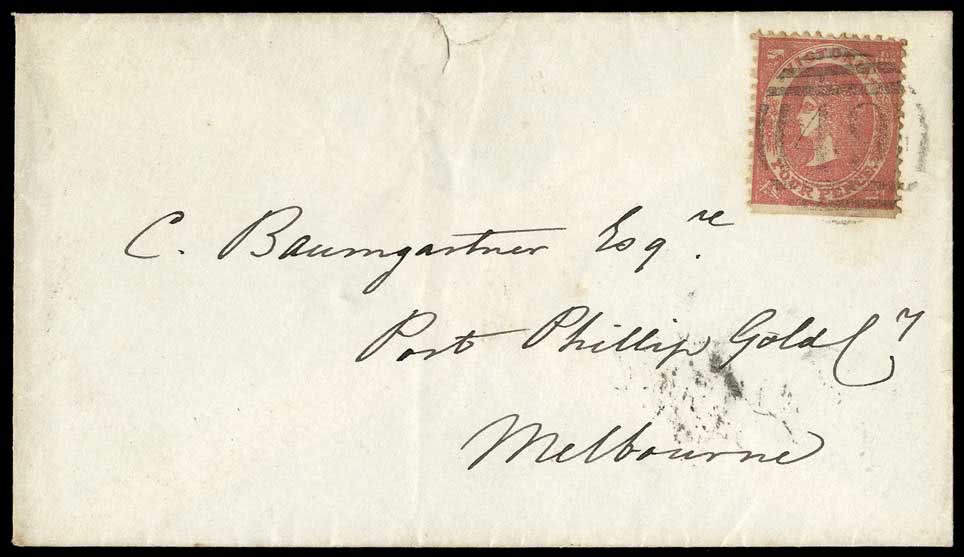 VICTORIA
FOUR PENCE
C. Baumgartner Esqre.
Port Phillip Gold Cy
Melbourne